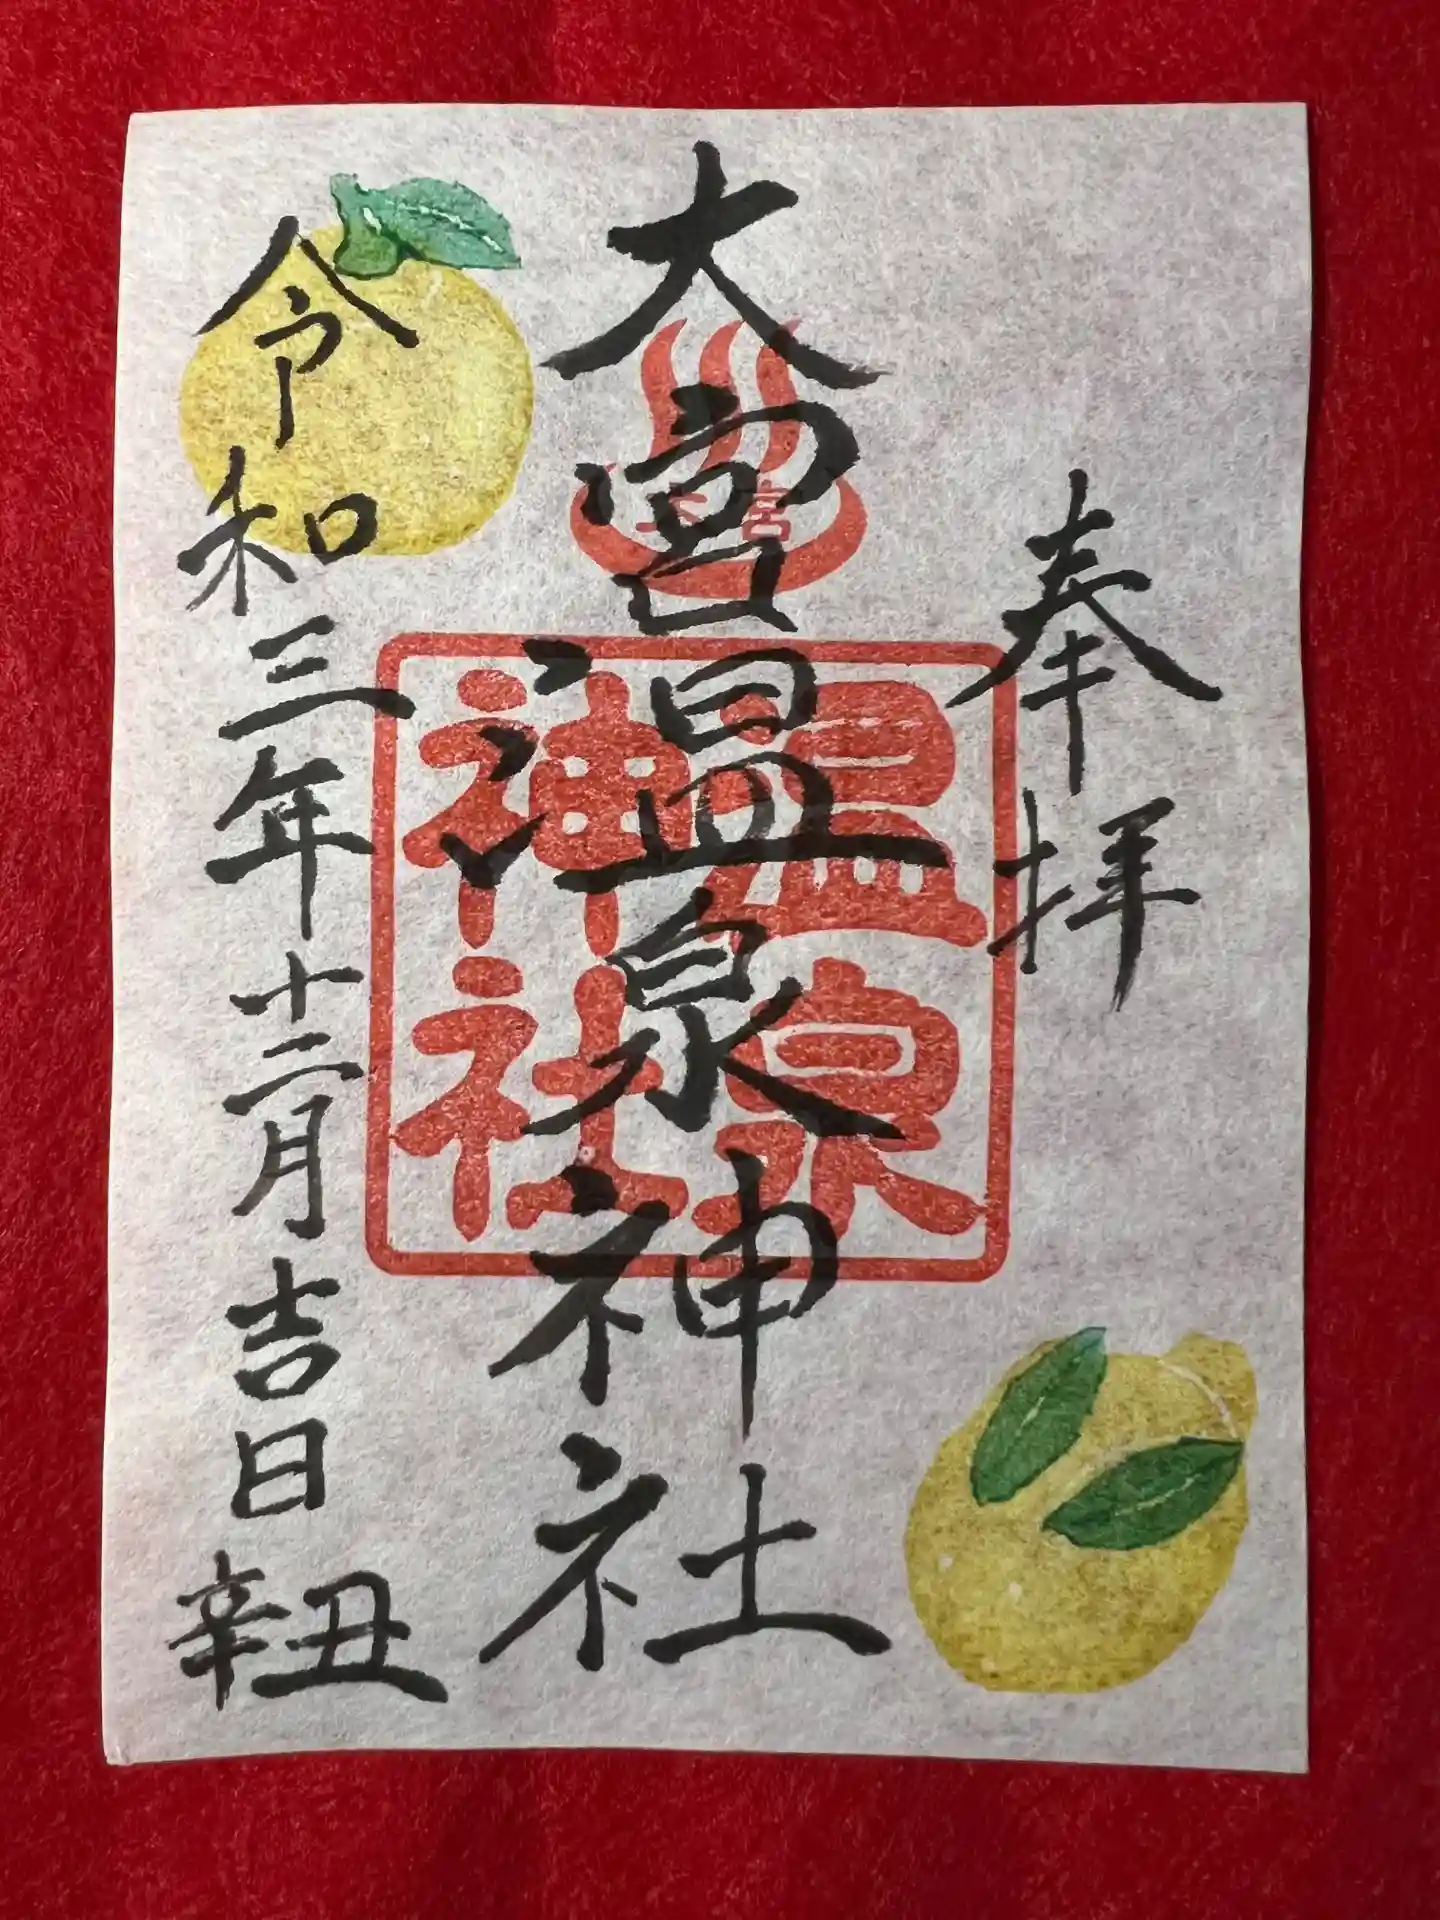 奉拝
大宮温泉神社
大宮
温泉
神社
令和三年十二月吉日
辛丑